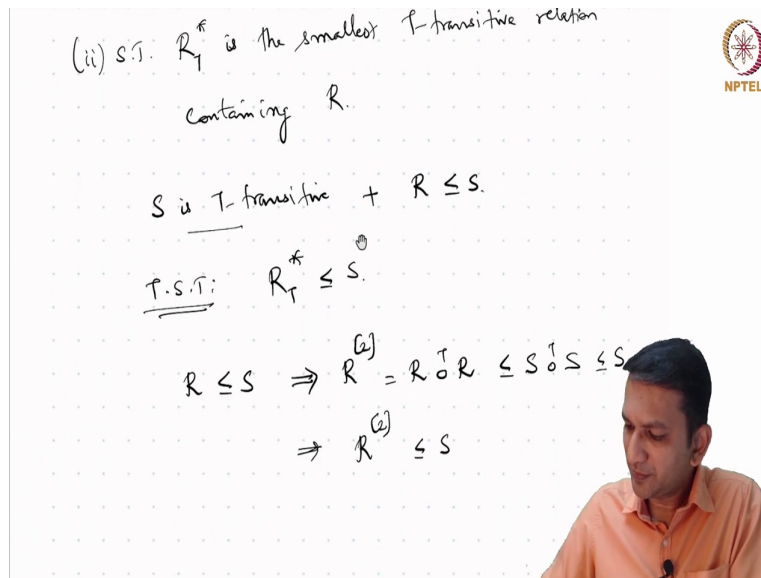 (ii) S.T. R_T^* is the smallest T-transitive relation
NPTEL
containing R.
S is T-transitive + R ≤ S.
T.S.T: R_T^* ≤ S.
R ≤ S ⇒ R^[2] = R o^T R ≤ S o^T S ≤ S
⇒ R^[2] ≤ S